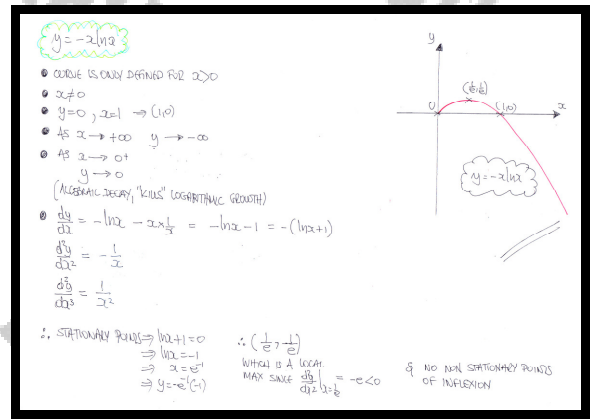 y = -x lnx
• CURVE IS ONLY DEFINED FOR x>0
• x≠0
• y=0, x=1 ⇒ (1,0)
• AS x → +∞ y → -∞
• AS x → 0+
y → 0
(ALGEBRAIC DECAY, "KILLS" LOGARITHMIC GROWTH)
• dy/dx = -lnx - x×1/x = -lnx-1 = -(lnx+1)
d²y/dx² = -1/x
d³y/dx³ = 1/x²
∴ STATIONARY POINTS ⇒ lnx+1=0
⇒ lnx=-1
⇒ x=e⁻¹
⇒ y=-e⁻¹(-1)
∴ (1/e, 1/e)
WHICH IS A LOCAL
MAX SINCE d²y/dx²|x=1/e = -e<0
& NO NON STATIONARY POINTS
OF INFLEXION
y
(1/e, 1/e)
0
(1,0)
x
y=-x lnx